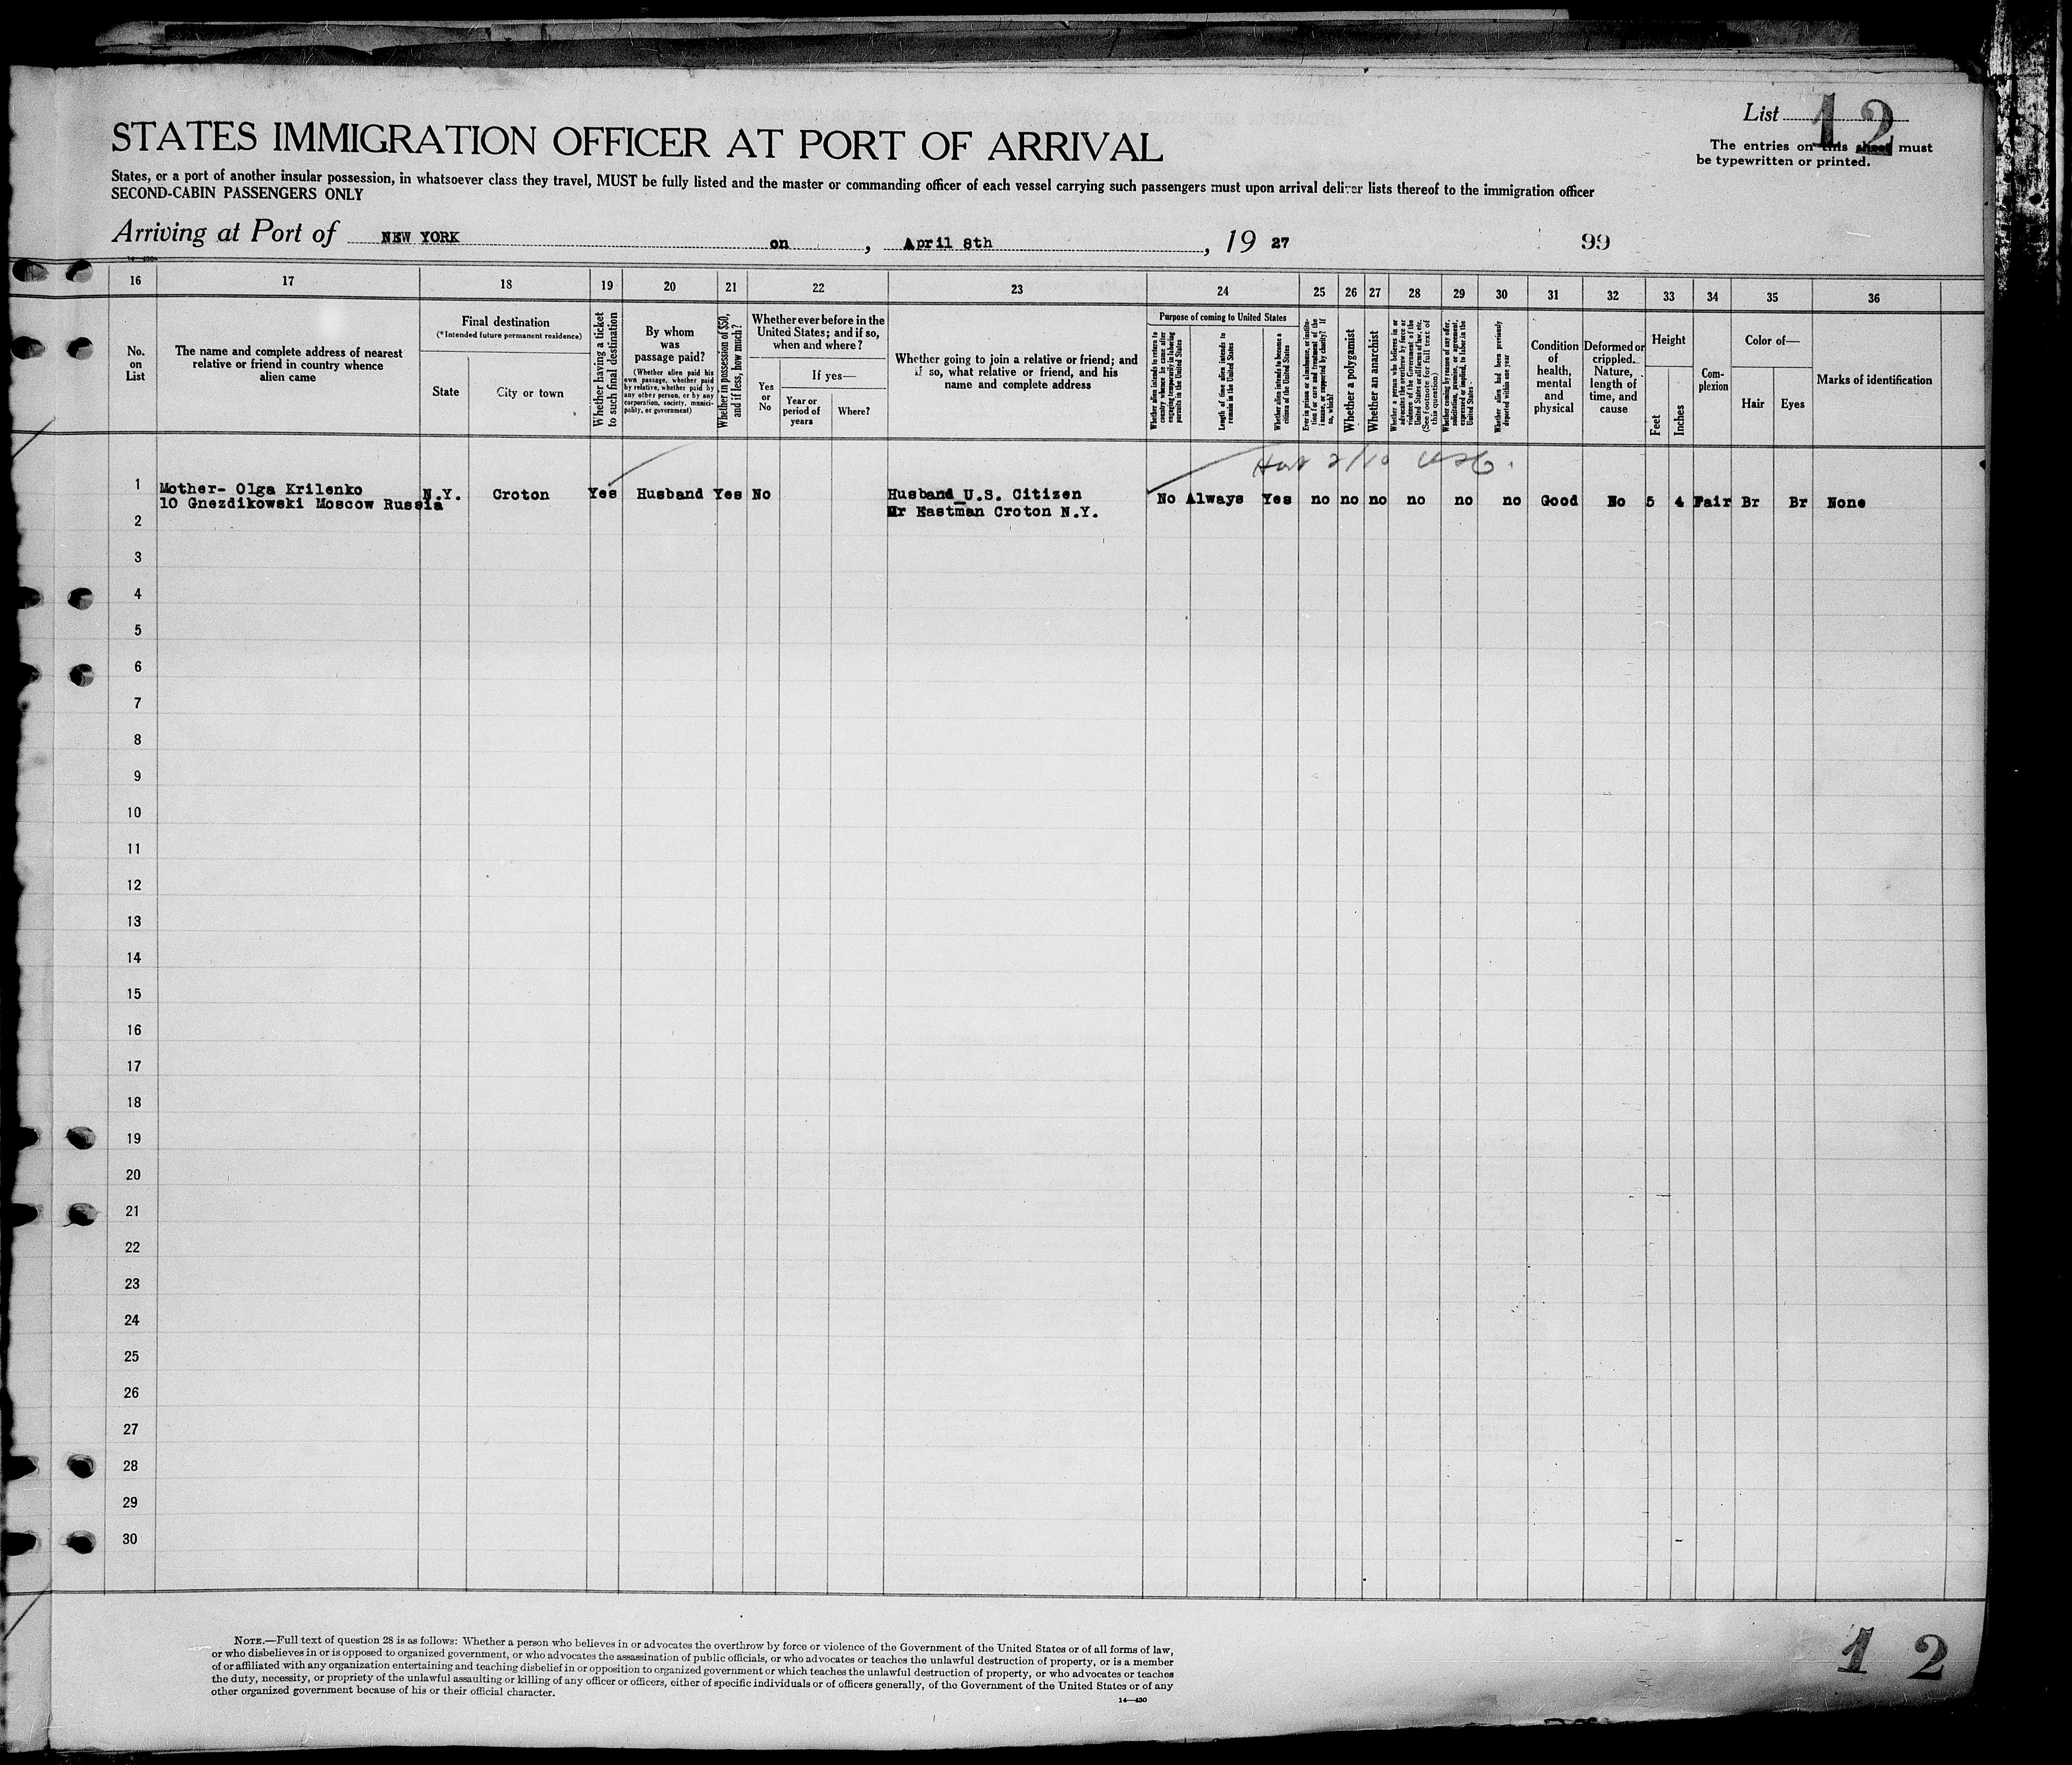 List 12
The entries on this sheet must
be typewritten or printed.
STATES IMMIGRATION OFFICER AT PORT OF ARRIVAL
States, or a port of another insular possession, in whatsoever class they travel, MUST be fully listed and the master or commanding officer of each vessel carrying such passengers must upon arrival deliver lists thereof to the immigration officer
SECOND-CABIN PASSENGERS ONLY
Arriving at Port of NEW YORK on , April 8th , 19 27
99
16 17 18 19 20 21 22 23 24 25 26 27 28 29 30 31 32 33 34 35 36
No.
on
List
The name and complete address of nearest
relative or friend in country whence
alien came
Final destination
(*Intended future permanent residence)
State
City or town
Whether having a ticket
to such final destination
By whom
was
passage paid?
(Whether alien paid his
own passage, whether paid
by relative, whether paid by
any other person, or by any
corporation, society, munici-
pality, or government)
Whether in possession of $50,
and if less, how much?
Whether ever before in the
United States; and if so,
when and where?
Yes
or
No
If yes—
Year or
period of
years
Where?
Whether going to join a relative or friend; and
if so, what relative or friend, and his
name and complete address
Purpose of coming to United States
Whether alien intends to return to
country whence he came after
engaging temporarily in laboring
pursuits in the United States
Length of time alien intends to
remain in the United States
Whether alien intends to become a
citizen of the United States
Ever in prison or almshouse, or institu-
tion for care and treatment of the
insane, or supported by charity? If
so, which?
Whether a polygamist
Whether an anarchist
Whether a person who believes in or
advocates the overthrow by force or
violence of the Government of the
United States or all forms of law, etc.
(See footnote for full text of
this question)
Whether coming by reason of any offer,
solicitation, promise, or agreement,
expressed or implied, to labor in the
United States
Whether alien had been previously
deported within one year
Condition
of
health,
mental
and
physical
Deformed or
crippled.
Nature,
length of
time, and
cause
Height
Feet
Inches
Com-
plexion
Color of—
Hair
Eyes
Marks of identification
1 Mother- Olga Krilenko N.Y. Croton Yes Husband Yes No Husband_U.S. Citizen No Always Yes no no no no no no Good No 5 4 Fair Br Br None
10 Gnezdikowski Moscow Russia Mr Eastman Croton N.Y.
2
3
4
5
6
7
8
9
10
11
12
13
14
15
16
17
18
19
20
21
22
23
24
25
26
27
28
29
30
NOTE.—Full text of question 28 is as follows: Whether a person who believes in or advocates the overthrow by force or violence of the Government of the United States or of all forms of law,
or who disbelieves in or is opposed to organized government, or who advocates the assassination of public officials, or who advocates or teaches the unlawful destruction of property, or is a member
of or affiliated with any organization entertaining and teaching disbelief in or opposition to organized government or which teaches the unlawful destruction of property, or who advocates or teaches
the duty, necessity, or propriety of the unlawful assaulting or killing of any officer or officers, either of specific individuals or of officers generally, of the Government of the United States or of any
other organized government because of his or their official character.
14—430
1 2